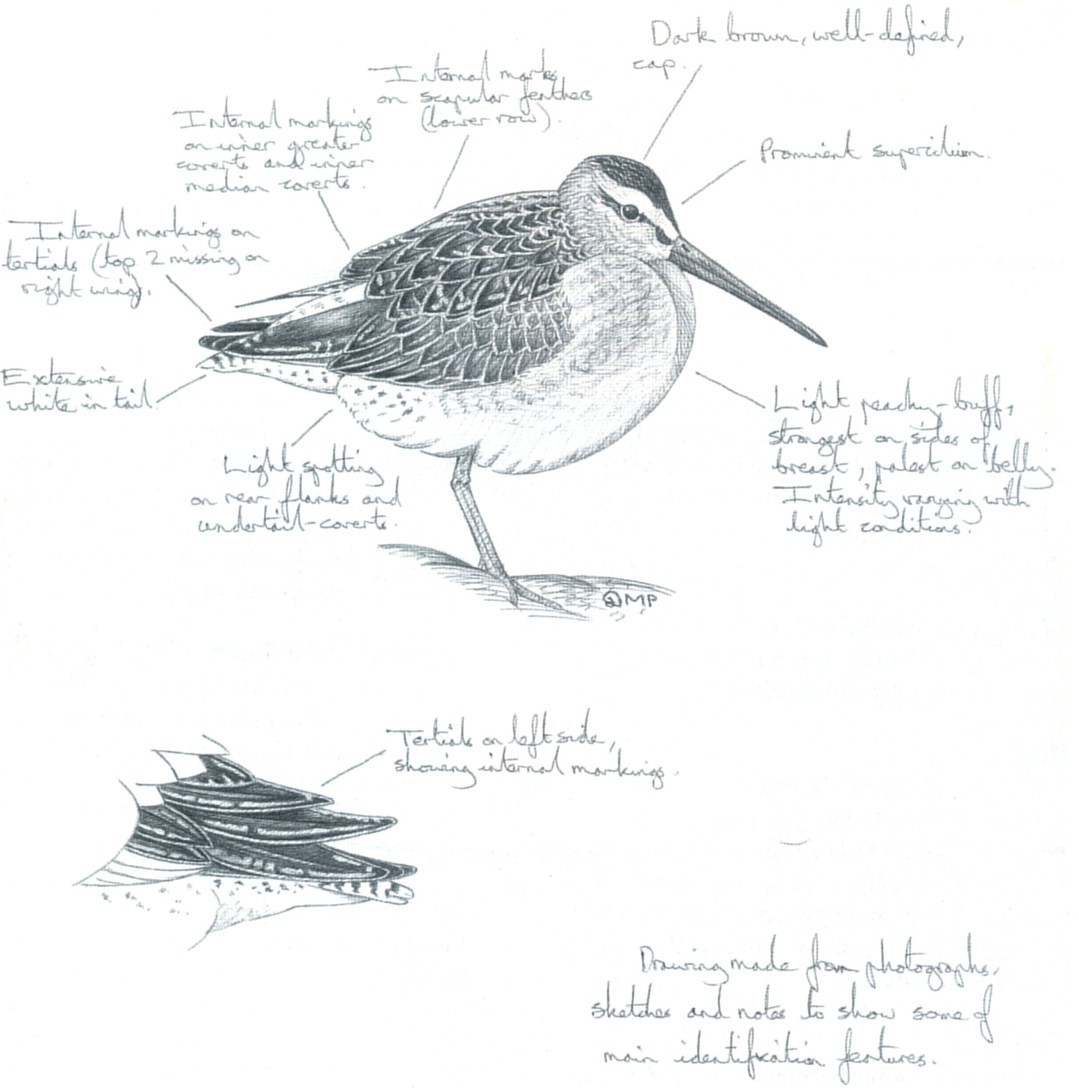 Dark brown, well-defined,
cap.
Internal marks
on scapular feathers
(lower row).
Internal markings
on inner greater
coverts and inner
median coverts.
Prominent supercilium.
Internal markings on
tertials (top 2 missing on
right wing).
Extensive
white in tail.
Light peachy-buff,
strongest on sides of
breast, palest on belly.
Intensity varying with
light conditions.
Light spotting
on rear flanks and
undertail-coverts.
MP
Tertials on left side,
showing internal markings.
Drawing made from photographs,
sketches and notes to show some of
main identification features.